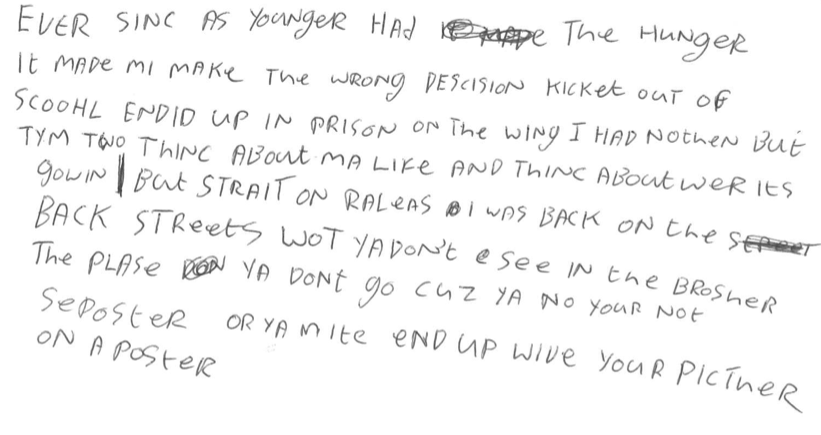 EVER SINC AS YOUNGER HAD THE HUNGER
IT MADE MI MAKE THE WRONG DESCISION KICKET OUT OF
SCOOHL ENDID UP IN PRISON ON THE WING I HAD NOTHEN BUT
TYM TWO THINC ABOUT MA LIKE AND THINC ABOUT WER ITS
GOWIN BUT STRAIT ON RALEAS I WAS BACK ON THE
BACK STREETS WOT YA DON'T SEE IN THE BROSHER
THE PLASE YA DONT GO CUZ YA NO YOUR NOT
SEPOSTER OR YA MITE END UP WIVE YOUR PICTHER
ON A POSTER